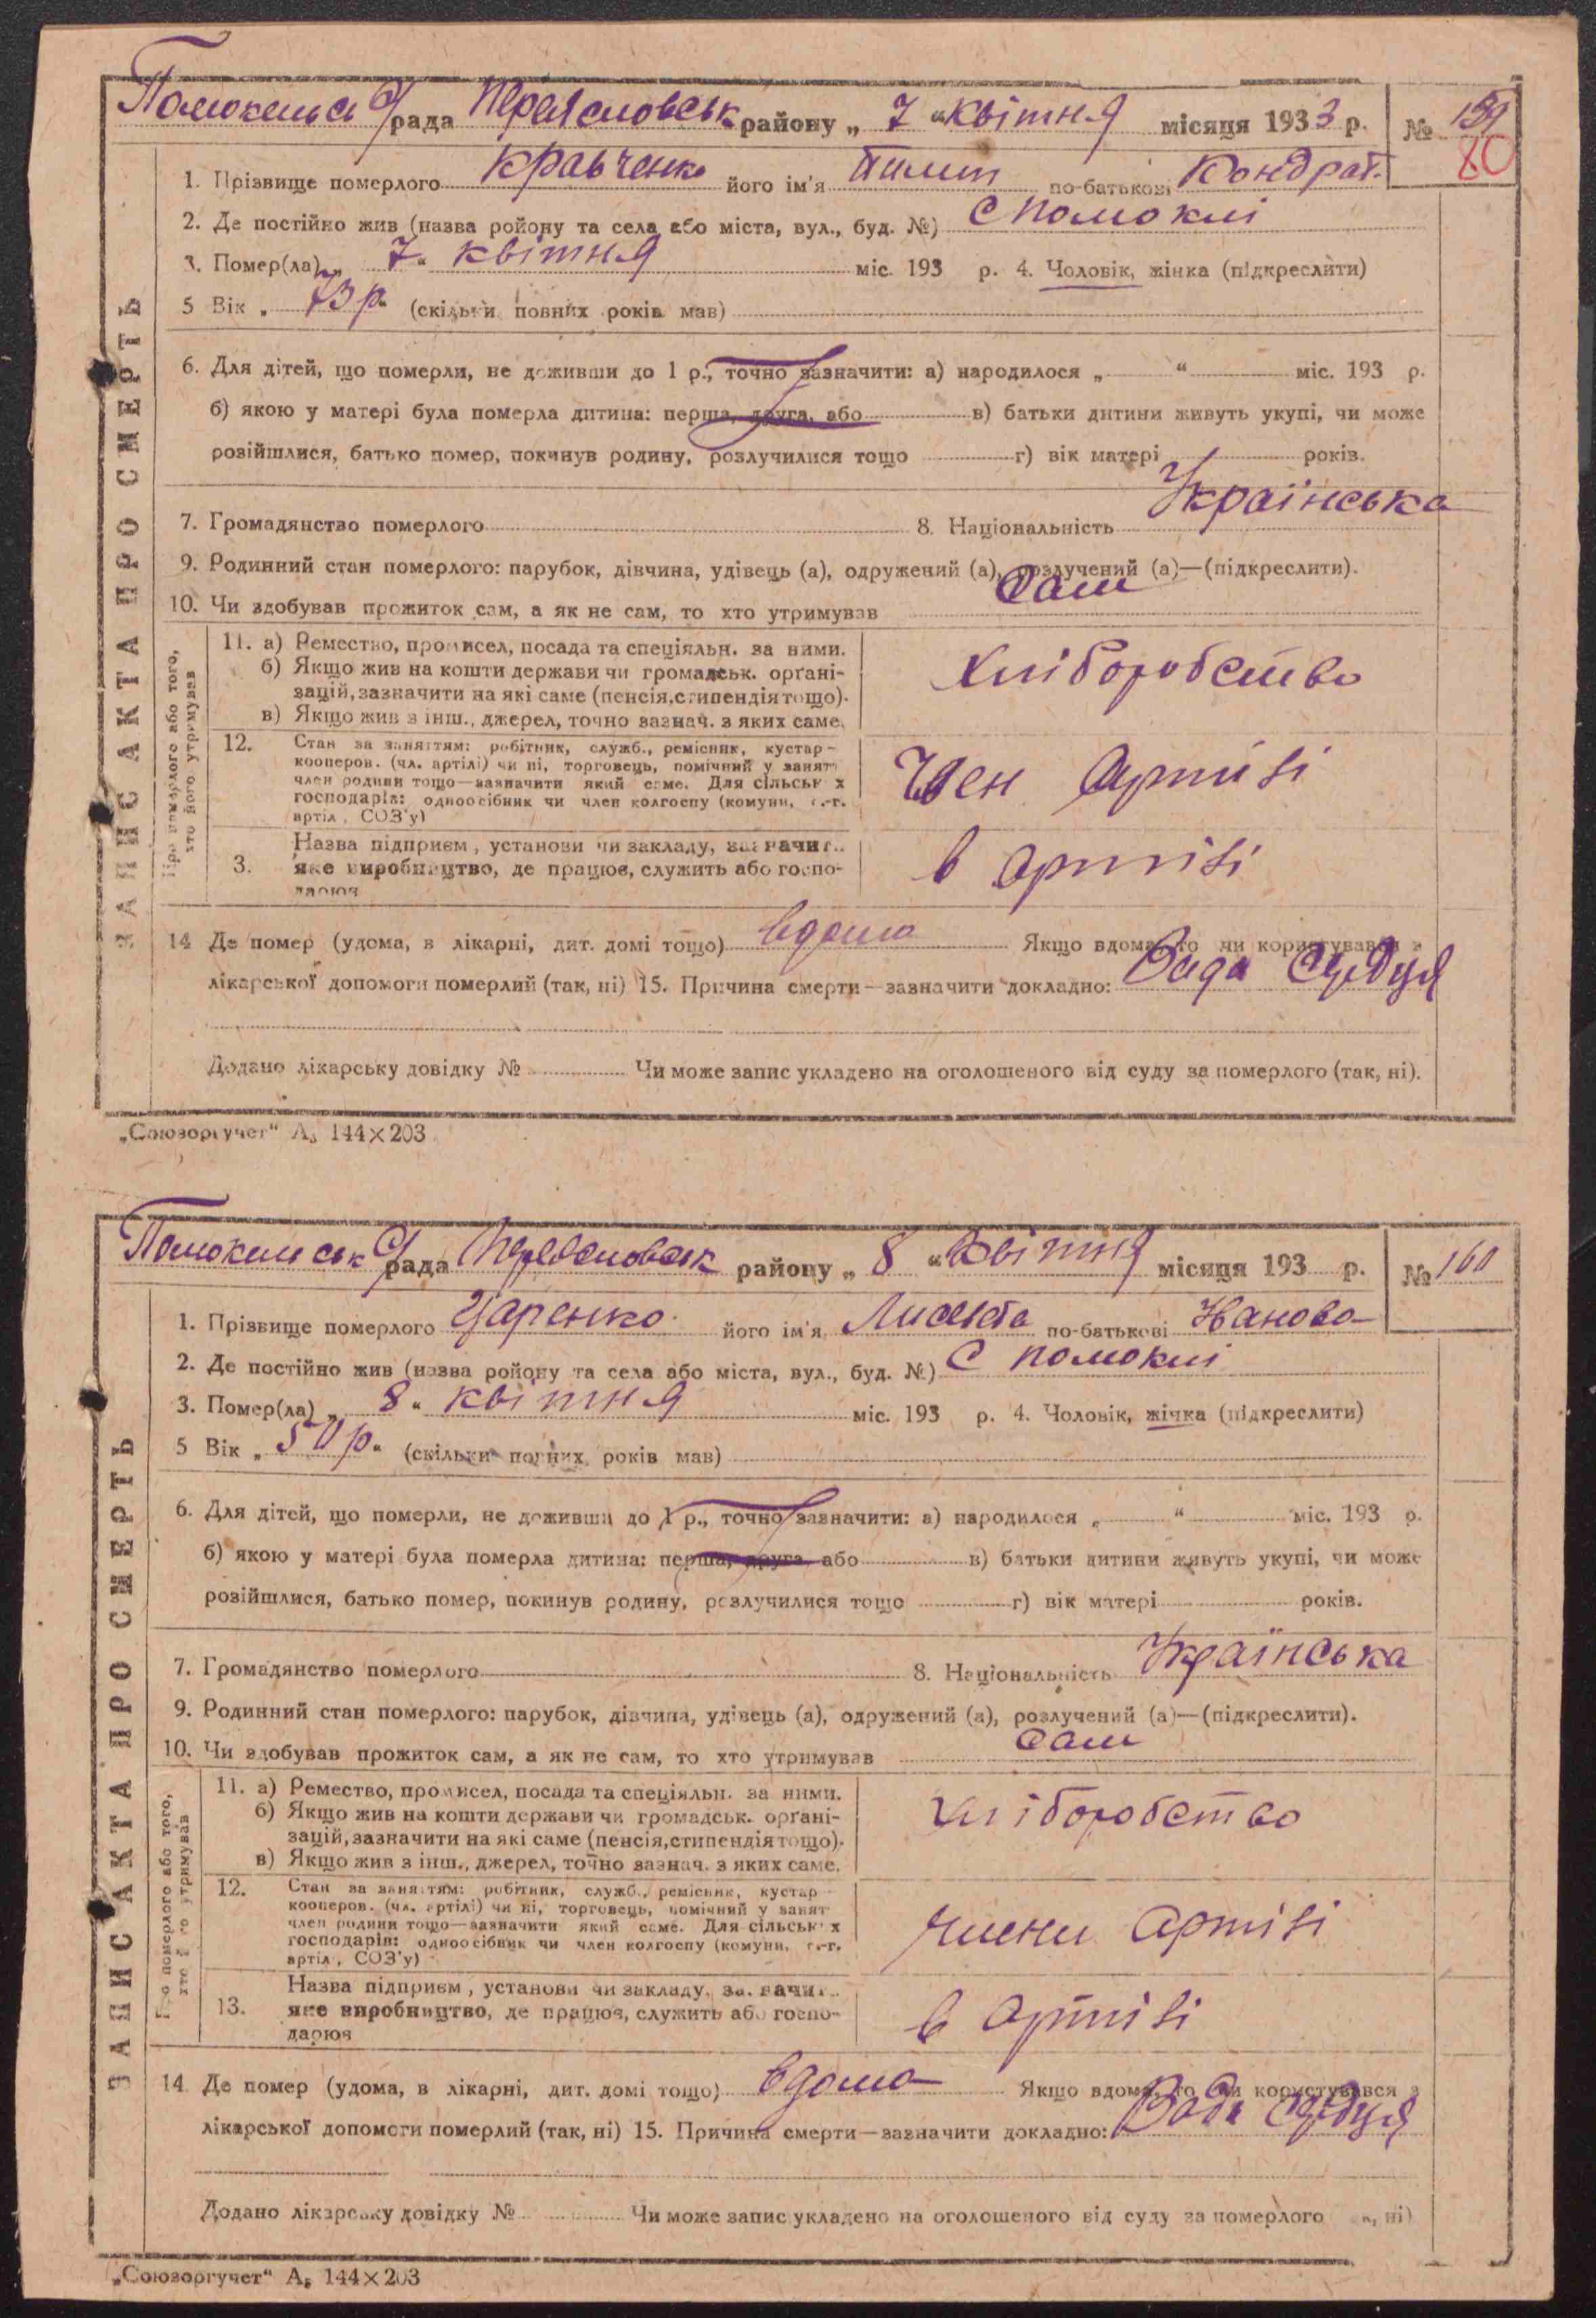 Помокельск с/рада Переяславськ району „ 7 “ Квітня місяця 1933 р. № 159
80
1. Прізвище померлого Кравченко його ім'я Пилип по-батькові Кондрат.
2. Де постійно жив (назва ройону та села або міста, вул., буд. №) С Помоклі
3. Помер(ла) „ 7 “ квітня міс. 193 р. 4. Чоловік, жінка (підкреслити)
5 Вік „ 73 р. “ (скільки повних років мав)
6. Для дітей, що померли, не доживши до 1 р., точно зазначити: а) народилося „ “ міс. 193 р.
б) якою у матері була померла дитина: перша, друга, або в) батьки дитини живуть укупі, чи може
розійшлися, батько помер, покинув родину, розлучилися тощо г) вік матері років.
7. Громадянство померлого 8. Національність Українська
9. Родинний стан померлого: парубок, дівчина, удівець (а), одружений (а), розлучений (а)—(підкреслити).
10. Чи здобував прожиток сам, а як не сам, то хто утримував Сам
ЗАПИС АКТА ПРО СМЕРТЬ
Про померлого або того,
хто його утримував
11. а) Ремество, промисел, посада та спеціяльн. за ними.
б) Якщо жив на кошти держави чи громадськ. орґані-
зацій, зазначити на які саме (пенсія, стипендія тощо).
в) Якщо жив з інш., джерел, точно зазнач. з яких саме.
Хліборобство
12. Стан за заняттям: робітник, служб., ремісник, кустар-
кооперов. (чл. артілі) чи ні, торговець, помічний у занят
член родини тощо—зазначити який саме. Для сільськ х
господарів: одноосібник чи член колгоспу (комуни, с.-г.
артіл , СОЗ'у)
Член Артілі
3. Назва підприєм , установи чи закладу, зазначит..
яке виробництво, де працює, служить або госпо-
дарює
в артілі
14 Де помер (удома, в лікарні, дит. домі тощо) вдома Якщо вдома, то чи користувався з
лікарської допомоги померлий (так, ні) 15. Причина смерти—зазначити докладно: Вада Сердця
Додано лікарську довідку № Чи може запис укладено на оголошеного від суду за померлого (так, ні).
„Союзоргучет“ А₅ 144×203
Помокельськ с/рада Переяславськ району „ 8 “ Квітня місяця 193 р. № 160
1. Прізвище померлого Царенко його ім'я по-батькові Іванова
2. Де постійно жив (назва ройону та села або міста, вул., буд. №) С Помоклі
3. Помер(ла) „ 8 “ квітня міс. 193 р. 4. Чоловік, жінка (підкреслити)
5 Вік „ 50 р. “ (скільки повних років мав)
6. Для дітей, що померли, не доживши до 1 р., точно зазначити: а) народилося „ “ міс. 193 р.
б) якою у матері була померла дитина: перша, друга, або в) батьки дитини живуть укупі, чи може
розійшлися, батько помер, покинув родину, розлучилися тощо г) вік матері років.
7. Громадянство померлого 8. Національність Українська
9. Родинний стан померлого: парубок, дівчина, удівець (а), одружений (а), розлучений (а)—(підкреслити).
10. Чи здобував прожиток сам, а як не сам, то хто утримував Сам
ЗАПИС АКТА ПРО СМЕРТЬ
Про померлого або того,
хто його утримував
11. а) Ремество, промисел, посада та спеціяльн. за ними.
б) Якщо жив на кошти держави чи громадськ. орґані-
зацій, зазначити на які саме (пенсія, стипендія тощо).
в) Якщо жив з інш., джерел, точно зазнач. з яких саме.
Хліборобство
12. Стан за заняттям: робітник, служб., ремісник, кустар-
кооперов. (чл. артілі) чи ні, торговець, помічний у занят
член родини тощо—зазначити який саме. Для сільськ х
господарів: одноосібник чи член колгоспу (комуни, с.-г.
артіл , СОЗ'у)
Члени Артілі
13. Назва підприєм , установи чи закладу, зазначит..
яке виробництво, де працює, служить або госпо-
дарює
в Артілі
14. Де помер (удома, в лікарні, дит. домі тощо) вдома Якщо вдома, то чи користувався з
лікарської допомоги померлий (так, ні) 15. Причина смерти—зазначити докладно: Вада Сердця
Додано лікарську довідку № Чи може запис укладено на оголошеного від суду за померлого ні)
„Союзоргучет“ А₅ 144×203